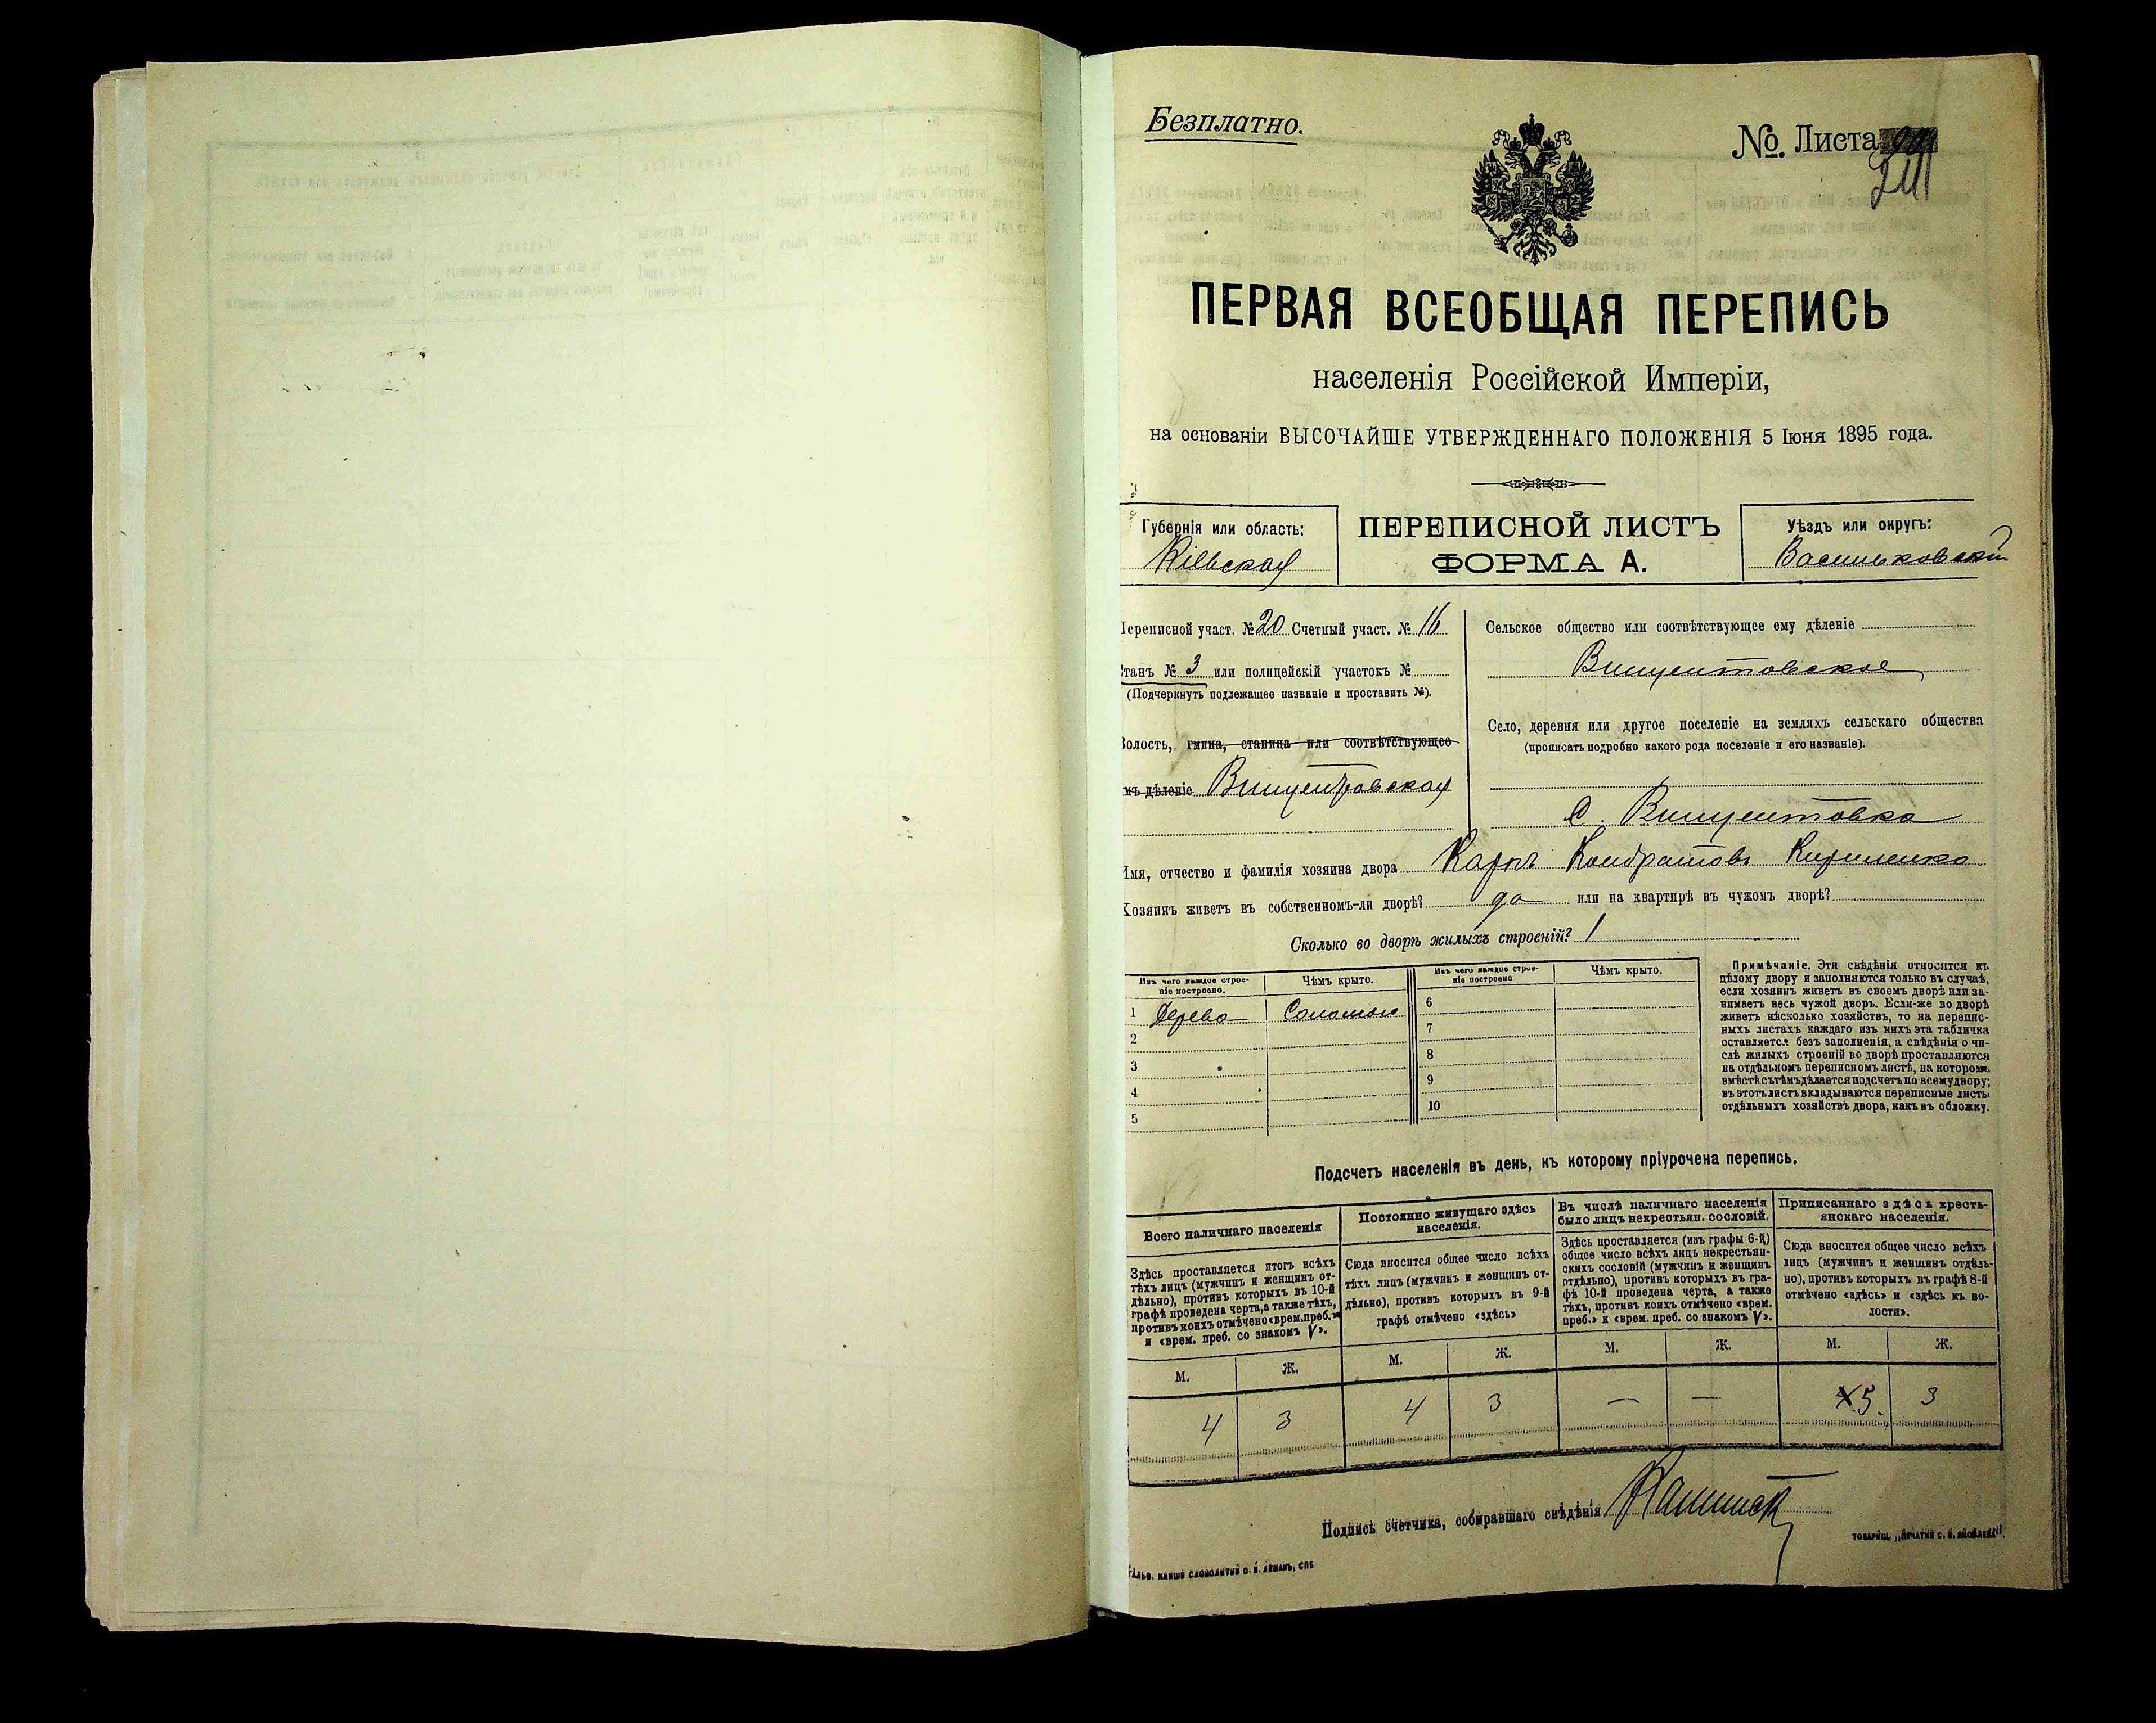 Безплатно.
№. Листа
ПЕРВАЯ ВСЕОБЩАЯ ПЕРЕПИСЬ
населенія Россійской Имперіи,
на основаніи ВЫСОЧАЙШЕ УТВЕРЖДЕННАГО ПОЛОЖЕНІЯ 5 Іюня 1895 года.
Губернія или область:
Кіевская
ПЕРЕПИСНОЙ ЛИСТЪ
ФОРМА А.
Уѣздъ или округъ:
Васильковскій
Переписной участ. № 20 Счетный участ. № 16
Станъ № 3 или полицейскій участокъ №
(Подчеркнуть подлежащее названіе и проставить №).
Волость, гмина, станица или соотвѣтствующее
мъ дѣленіе Винцентовская
Сельское общество или соотвѣтствующее ему дѣленіе
Винцентовское
Село, деревня или другое поселеніе на земляхъ сельскаго общества
(прописать подробно какого рода поселеніе и его названіе).
С. Винцентовка
Имя, отчество и фамилія хозяина двора Карпъ Кондратовъ Кириленко
Хозяинъ живетъ въ собственномъ-ли дворѣ? да или на квартирѣ въ чужомъ дворѣ?
Сколько во дворѣ жилыхъ строеній? 1
Изъ чего каждое строе-
ніе построено.
Чѣмъ крыто.
Изъ чего каждое строе-
ніе построено
Чѣмъ крыто.
1 Дерева Соломою 6
2 7
3 8
4 9
5 10
Примѣчаніе. Эти свѣдѣнія относятся къ
цѣлому двору и заполняются только въ случаѣ,
если хозяинъ живетъ въ своемъ дворѣ или за-
нимаетъ весь чужой дворъ. Если-же во дворѣ
живетъ нѣсколько хозяйствъ, то на перепис-
ныхъ листахъ каждаго изъ нихъ эта табличка
оставляется безъ заполненія, а свѣдѣнія о чи-
слѣ жилыхъ строеній во дворѣ проставляются
на отдѣльномъ переписномъ листѣ, на которомъ
вмѣстѣ съ тѣмъ дѣлается подсчетъ по всему двору;
въ этотъ листъ вкладываются переписные листы
отдѣльныхъ хозяйствъ двора, какъ въ обложку.
Подсчетъ населенія въ день, къ которому пріурочена перепись.
Всего наличнаго населенія
Здѣсь проставляется итогъ всѣхъ
тѣхъ лицъ (мужчинъ и женщинъ от-
дѣльно), противъ которыхъ въ 10-й
графѣ проведена черта, а также тѣхъ,
противъ коихъ отмѣчено «врем. преб.»
и «врем. преб. со знакомъ V».
Постоянно живущаго здѣсь
населенія.
Сюда вносится общее число всѣхъ
тѣхъ лицъ (мужчинъ и женщинъ от-
дѣльно), противъ которыхъ въ 9-й
графѣ отмѣчено «здѣсь»
Въ числѣ наличнаго населенія
было лицъ некрестьян. сословій.
Здѣсь проставляется (изъ графы 6-й)
общее число всѣхъ лицъ некрестьян-
скихъ сословій (мужчинъ и женщинъ
отдѣльно), противъ которыхъ въ гра-
фѣ 10-й проведена черта, а также
тѣхъ, противъ коихъ отмѣчено «врем.
преб.» и «врем. преб. со знакомъ V».
Приписаннаго здѣсь кресть-
янскаго населенія.
Сюда вносится общее число всѣхъ
лицъ (мужчинъ и женщинъ отдѣль-
но), противъ которыхъ въ графѣ 8-й
отмѣчено «здѣсь» и «здѣсь къ во-
лости».
М. Ж. М. Ж. М. Ж. М. Ж.
4 3 4 3 — — 5. 3
Подпись счетчика, собиравшаго свѣдѣнія
ГАЛЬВ. КЛИШЕ СЛОВОЛИТНИ О. И. ЛЕМАНЪ, СПБ
ТОВАРИЩ. „ПЕЧАТНЯ С. П. ЯКОВЛЕВА“.